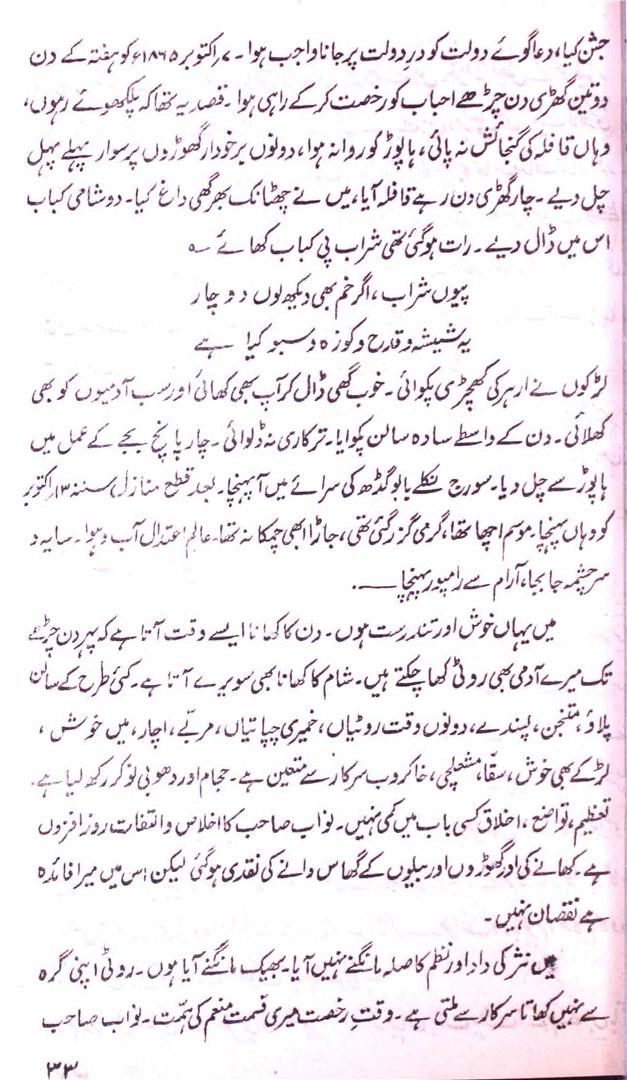 جشن کیا، دعا گوئے دولت کو درِ دولت پر جانا واجب ہوا۔ ۷؍ اکتوبر ۱۸۶۵ء کو ہفتہ کے دن
دو تین گھڑی دن چڑھے احباب کو رخصت کر کے راہی ہوا۔ قصد یہ تھا کہ پلکھوے رہوں،
وہاں قافلہ کی گنجائش نہ پائی، ہاپوڑ کو روانہ ہوا، دونوں برخوردار گھوڑوں پر سوار پہلے پہل
چل دیے۔ چار گھڑی دن رہے قافلہ آیا، میں نے چھٹانک بھر گھی داغ کیا۔ دو شامی کباب
اس میں ڈال دیئے۔ رات ہو گئی تھی شراب پی کباب کھائے ؎
پیوں شراب، اگر خم بھی دیکھ لوں دو چار
یہ شیشہ و قدح و کوزہ و سبو کیا ہے
لڑکوں نے ارہر کی کھچڑی پکوائی۔ خوب گھی ڈال کر آپ بھی کھائی اور سب آدمیوں کو بھی
کھلائی۔ دن کے واسطے سادہ سالن پکوایا۔ ترکاری نہ ڈلوائی۔ چار پانچ بجے کے عمل میں
ہاپوڑ سے چل دیا۔ سورج نکلے بابو گڈھ کی سرائے میں آ پہنچا۔ بعد قطع منازل ستہ ۱۳؍ اکتوبر
کو وہاں پہنچا۔ موسم اچھا تھا، گرمی گزر گئی تھی، جاڑا ابھی چمکا نہ تھا۔ عالم اعتدال آب و ہوا۔ سایہ و
سرچشمہ جا بجا، آرام سے رامپور پہنچا ــــ۔
میں یہاں خوش اور تندرست ہوں۔ دن کا کھانا ایسے وقت آتا ہے کہ پہر دن چڑھے
تک میرے آدمی بھی روٹی کھا چکتے ہیں۔ شام کا کھانا بھی سویرے آتا ہے۔ کئی طرح کے سالن
پلاؤ، متنجن، پسندے، دونوں وقت روٹیاں، خمیری چپاتیاں، مربّے، اچار، میں خوش،
لڑکے بھی خوش، سقّا، مشعلچی، خاکروب سرکار سے متعین ہے۔ حجام اور دھوبی نوکر رکھ لیا ہے۔
تعظیم، تواضع، اخلاق کسی باب میں کمی نہیں۔ نواب صاحب کا اخلاص و التفات روز افزوں
ہے۔ کھانے کی اور گھوڑوں اور بیلوں کے گھاس دانے کی نقدی ہو گئی لیکن اس میں میرا فائدہ
ہے نقصان نہیں۔
میں نثر کی داد اور نظم کا صلہ مانگنے نہیں آیا۔ بھیک مانگنے آیا ہوں۔ روٹی اپنی گرہ
سے نہیں کھاتا سرکار سے ملتی ہے۔ وقتِ رخصت میری قسمت منعم کی ہمّت۔ نواب صاحب
۳۳